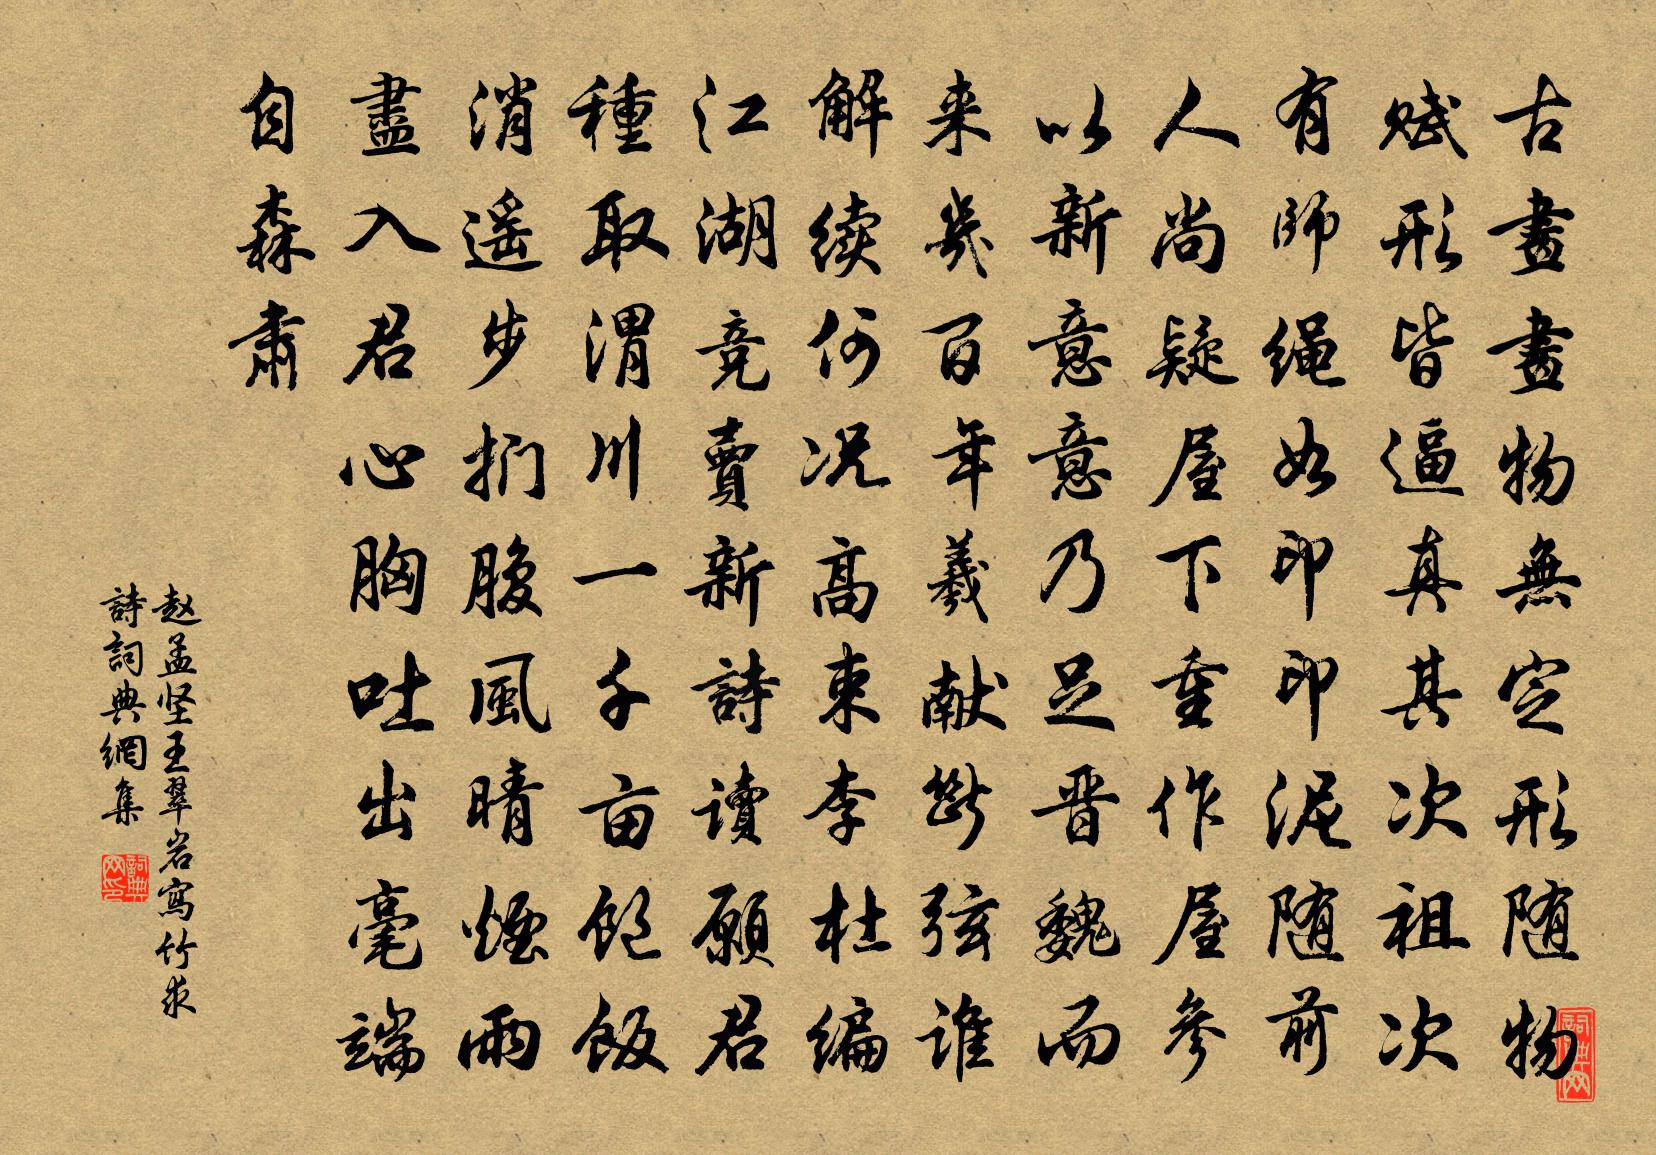 古畫畫物無定形随物
赋形皆逼真其次祖次
有師绳如印印泥随前
人尚疑屋下重作屋参
以新意意乃足晋魏而
来幾百年羲献斷弦谁
解续何况高束李杜编
江湖竞賣新詩读願君
種取渭川一千亩饱饭
消遥步捫腹風晴煙雨
盡入君心胸吐出毫端
自森肅
赵孟坚王翠岩寫竹求
詩詞典網集
詞典网